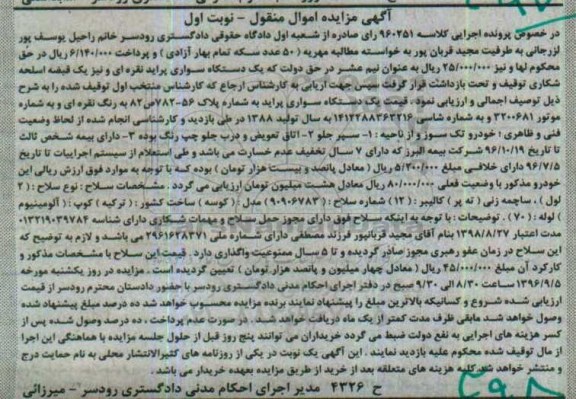 آگهی مزایده اموال منقول - نوبت اول
در خصوص پرونده اجرایی کلاسه ۹۶۰۲۵۱ رای صادره از شعبه اول دادگاه حقوقی دادگستری رودسر خانم راحیل یوسف پور
لزرجانی به طرفیت مجید قربان پور به خواسته مطالبه مهریه (۵۰ عدد سکه تمام بهار آزادی) و پرداخت ۶/۱۴۰/۰۰۰ ریال در حق
محکوم لها و نیز ۲۵/۰۰۰/۰۰۰ ریال به عنوان نیم عشر در حق دولت که یک دستگاه سواری پراید نقره ای و نیز یک قبضه اسلحه
شکاری توقیف و تحت بازداشت قرار گرفت سپس جهت ارزیابی به کارشناس ارجاع که کارشناس منتخب اول توقیف شده را به شرح
ذیل توصیف اجمالی و ارزیابی نمود، قیمت یک دستگاه سواری پراید به شماره پلاک ۵۶-۷۸۲ص۸۲ به رنگ نقره ای و به شماره
موتور ۳۲۰۰۶۸۱ و به شماره شاسی ۱۴۱۲۲۸۸۳۶۳۲۱۶ به سال تولید ۱۳۸۸ در طی بازدید و کارشناسی انجام شده از لحاظ وضعیت
فنی و ظاهری ؛ خودرو تک سوز و از ناحیه : ۱- سپر جلو ۲- اتاق تعویض و درب جلو چپ رنگ بوده ۳- دارای بیمه شخص ثالث
تا تاریخ ۹۶/۱۰/۱۹ شرکت بیمه البرز که دارای ۷ سال تخفیف عدم خسارت می باشد و طی استعلام از سیستم اجراییات تا تاریخ
۹۶/۷/۵ دارای خلافی مبلغ ۵/۲۰۰/۰۰۰ ریال ( معادل پانصد و بیست هزار تومان ) بوده که با توجه به موارد فوق ارزش ریالی این
خودرو مذکور با وضعیت فعلی ۸۰/۰۰۰/۰۰۰ ریال معادل هشت میلیون تومان ارزیابی می گردد . مشخصات سلاح : نوع سلاح : (۲
لول) ، ساچمه زنی (ته پر) کالیبر : (۱۲) شماره سلاح : (۹۰۹۰۶۷۸۳) مدل : (کوسه) ساخت کشور : (ترکیه) کوپ : (آلومینیوم
) لوله : (۷۰) . توضیحات : با توجه به اینکه سلاح فوق دارای مجوز حمل سلاح و مهمات شکاری دارای شناسه ۰۱۳۲۱۹۰۳۹۷۸۴
مدت اعتبار ۱۳۹۸/۸/۲۷ بنام آقای مجید قربانپور فرزند مصطفی دارای شماره ملی ۲۹۶۱۶۲۸۳۷۱ می باشد و لازم به توضیح که
این سلاح در زمان عفو رهبری مجوز صادر گردیده و تا ۵ سال ممنوعیت واگذاری دارد . قیمت این سلاح با مشخصات مذکور و
کارکرد آن مبلغ ۴۵/۰۰۰/۰۰۰ ریال (معادل چهار میلیون و پانصد هزار تومان) تعیین گردیده است . مزایده در روز یکشنبه مورخه
۱۳۹۶/۹/۵ ساعت ۸/۳۰ الی ۹/۳۰ صبح در دفتر اجرای احکام مدنی دادگستری رودسر با حضور دادستان محترم رودسر از قیمت
ارزیابی شده شروع و کسانیکه بالاترین مبلغ را پیشنهاد نمایند برنده مزایده محسوب خواهد شد ده درصد مبلغ پیشنهاد شده
وصول خواهد شد مابقی ظرف مدت کمتر از یک ماه دریافت خواهد شد . درصورت عدم پرداخت ، ده درصد وصول شده پس از
کسر هزینه های اجرایی به نفع دولت ضبط می گردد خریداران می توانند پنج روز قبل از حلول جلسه مزایده با هماهنگی این اجرا
از مال توقیف شده محکوم علیه بازدید نمایند . این آگهی یک نوبت در یکی از روزنامه های کثیرالانتشار محلی به نام حمایت درج
و منتشر خواهد شد کلیه هزینه های متعلقه بعد از خرید از طریق مزایده بعهده خریدار می باشد .
ح ۴۳۲۶ مدیر اجرای احکام مدنی دادگستری رودسر - میرزائی